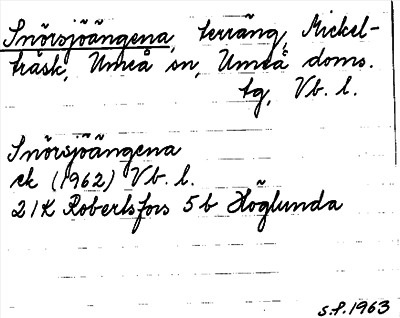 Snörsjöängena, terräng, Mickel-
träsk, Umeå sn, Umeå doms.
tg, Vb. l.
Snörsjöängena
ek (1962) Vb. l.
21K Robertsfors 5b Höglunda
S.f. 1963